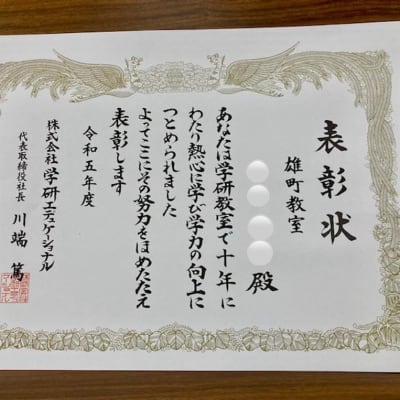 表彰状
雄町教室
殿
あなたは学研教室で十年に
わたり熱心に学び学力の向上に
つとめられました
よってここにその努力をほめたたえ
表彰します
令和五年度
株式会社 学研エデュケーショナル
代表取締役社長 川端 篤